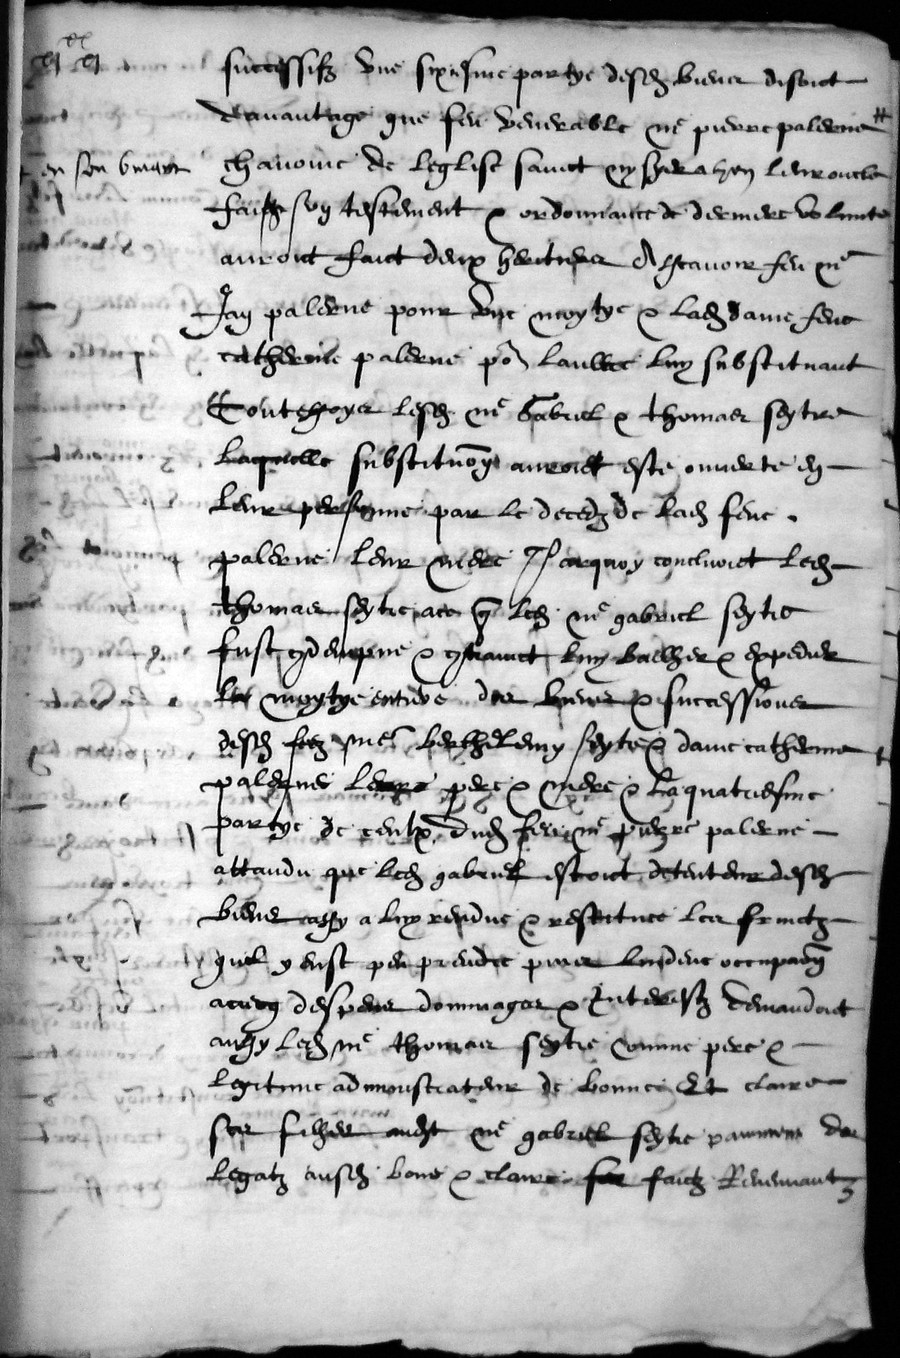 successifz une sixiesme partye desd. biens disoict
davantage que feu venerable me pierre palerne
en son vivant
chanoine de leglise sainct
faict son testement & ordonnance de derniere volunte
auroit faict deux heritiers Ascavoir feu me
Jan palerne pour une moytye & lad. dame feue
catherine palerne po laultre luy substituant
lesd. me Gabriel & thomas seytre
Laquelle substituon auroict este ouverte en
leur personne par le decedz de lad. feue
palerne leur mere Parquoy concluoict led.
thomas seytre ace q led. me gabriel seytre
fust condempne & contrainct luy bailher & expedier
la moytye entiere des biens & successions
desd. feuz me berthelemy seytre & dame catherine
palerne leurs pere & mere & la quatriesme
partye de ceulx dud. feu me pierre palerne
attandu que led. gabriel estoict detenteur desd.
biens aussy a luy rendre & restituer les fruictz
quil y eust peu prendre puis lindeue occupaon
avecq despens dommages & Interestz demandoict
aussy led. me thomas seytre comme pere &
legitime administrateur de bonne Et claire
ses filhes audt me gabriel seytre paiement des
legatz ausd. bone & claire faictz Revenantz